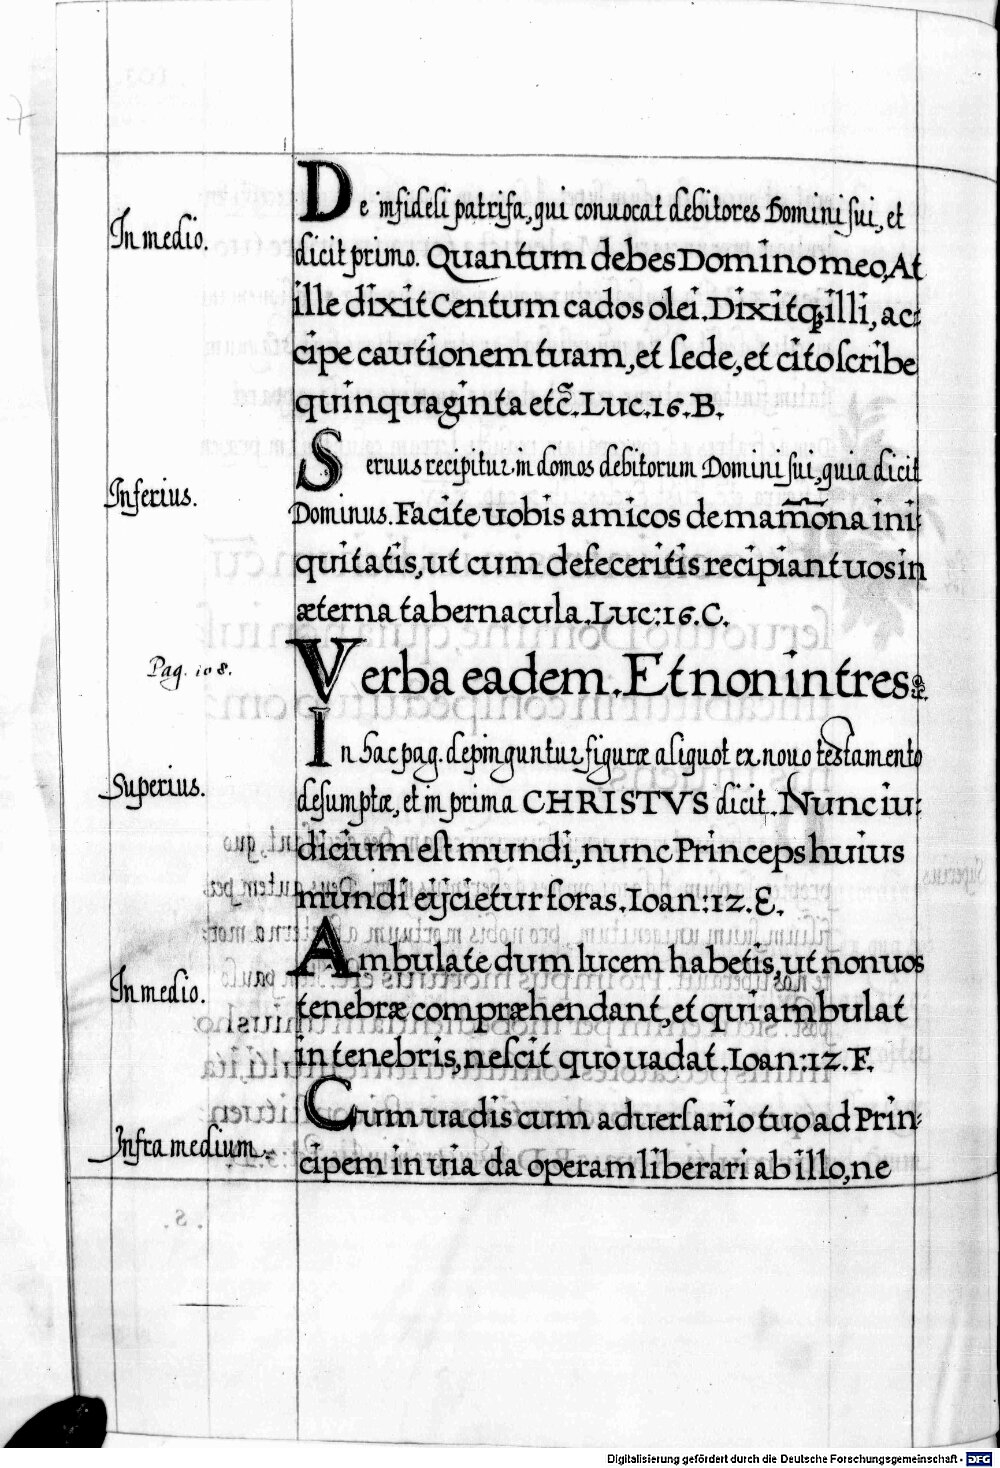 In medio.
De infideli patrifa, qui conuocat debitores Domini sui, et
dicit primo. Quantum debes Domino meo, At
ille dixit Centum cados olei. Dixitq; illi, ac-
cipe cautionem tuam, et sede, et cito scribe
quinquaginta etc̃. Luc. 16. B.
Inferius.
Seruus recipitur in domos debitorum Domini sui, quia dicit
Dominus. Facite uobis amicos de mam̃ona ini-
quitatis, ut cum defeceritis recipiant uos in
æterna tabernacula. Luc: 16. C.
Pag. 108.
Verba eadem. Et non intres etc.
Superius.
In hac pag. depinguntur figuræ aliquot ex nouo testamento
desumptæ, et in prima CHRISTVS dicit. Nunc iu-
dicium est mundi, nunc Princeps huius
mundi eijcietur foras. Ioan: 12. E.
In medio.
Ambulate dum lucem habetis, ut non uos
tenebræ compræhendant, et qui ambulat
in tenebris, nescit quo uadat. Ioan: 12. F.
Infra medium.
Cum uadis cum aduersario tuo ad Prin-
cipem in uia da operam liberari ab illo, ne
Digitalisierung gefördert durch die Deutsche Forschungsgemeinschaft - DFG